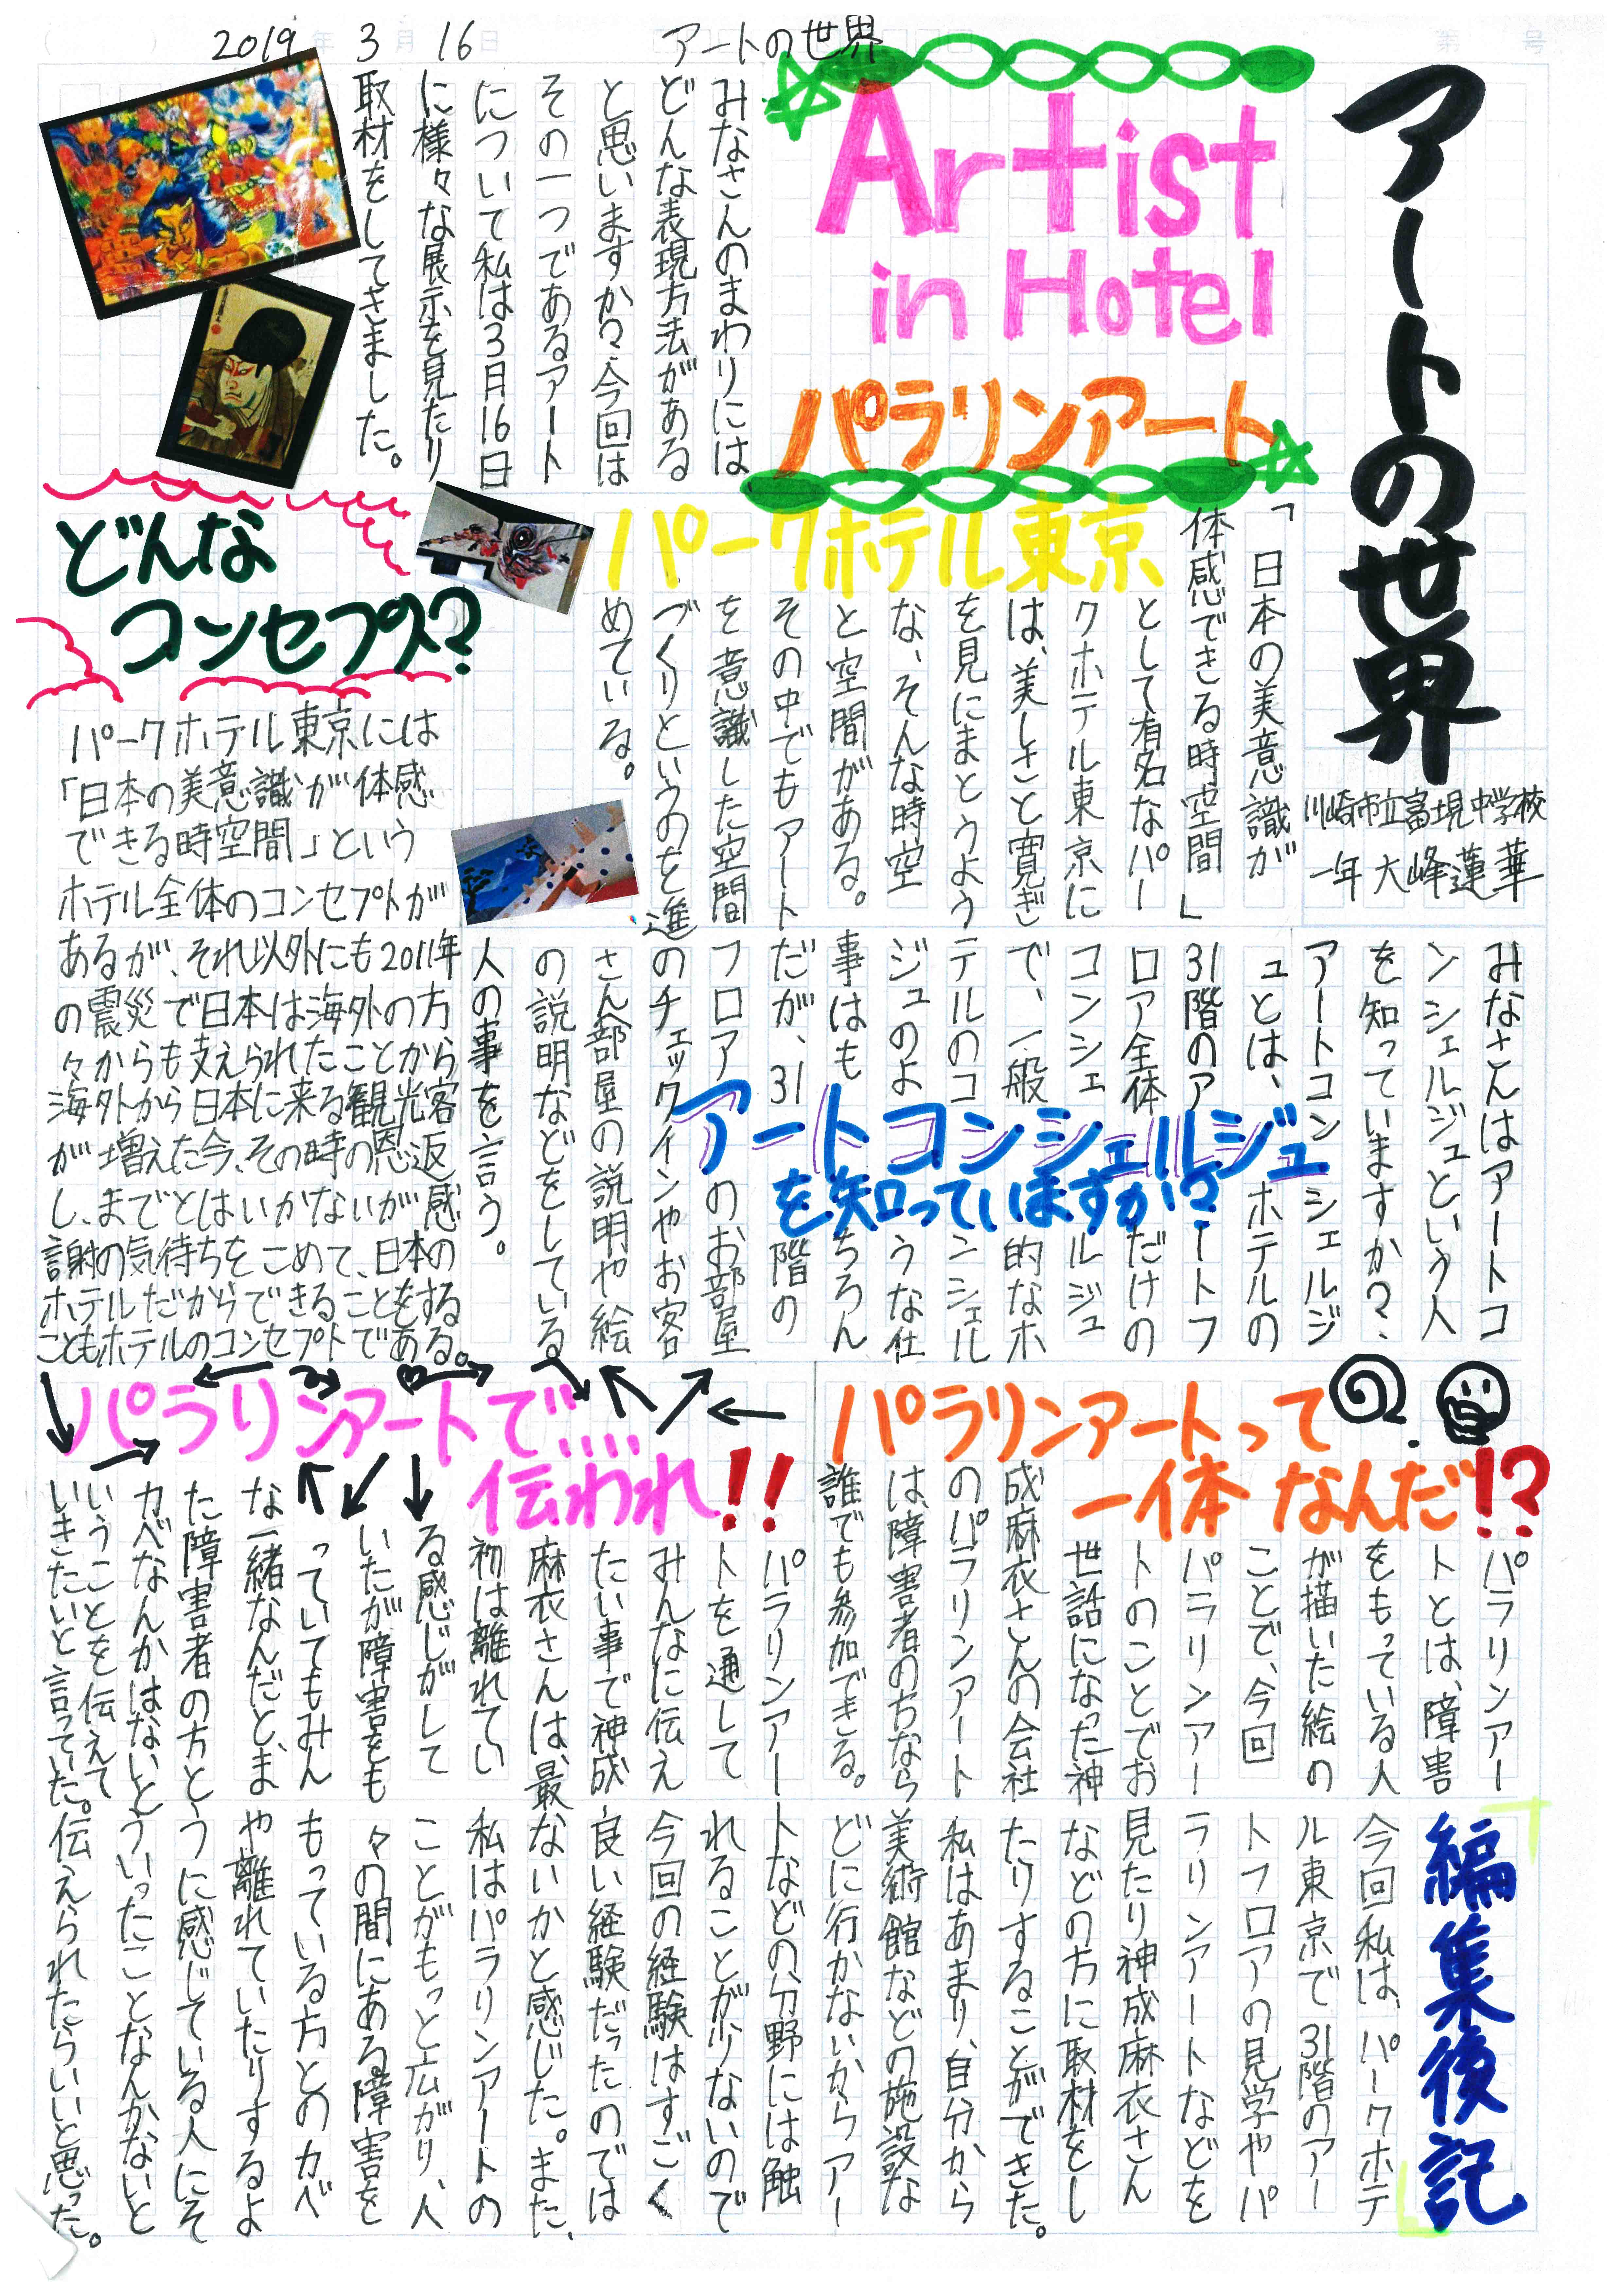 2019年3月16日
アートの世界
第 号
アートの世界
川崎市立富士見中学校
一年 大峰蓮華
Artist
in Hotel
パラリンアート
みなさんのまわりには
どんな表現方法がある
と思いますか？今回は
その一つであるアート
について私は3月16日
に様々な展示を見たり
取材をしてきました。
パークホテル東京
「日本の美意識が
体感できる時空間」
として有名なパー
クホテル東京に
は、美しさと寛ぎ
を見にまとうよう
な、そんな時空
と空間がある。
その中でもアート
を意識した空間
づくりというのを進
めている。
どんな
コンセプト?
パークホテル東京には
「日本の美意識が体感
できる時空間」という
ホテル全体のコンセプトが
あるが、それ以外にも2011年
の震災で日本は海外の方
々からも支えられたことから
海外から日本に来る観光客
が増えた今、その時の恩返
し、までとはいかないが感
謝の気待ちをこめて、日本の
ホテルだからできることをする
こともホテルのコンセプトである。
アートコンシェルジュ
を知っていますか!?
みなさんはアートコ
ンシェルジュという人
を知っていますか？、
アートコンシェルジ
ュとは、ホテルの
31階のアートフ
ロア全体だけの
コンシェルジュ
で、一般的なホ
テルのコンシェル
ジュのような仕
事はもちろん
だが、31階の
フロアのお部屋
のチェックインやお客
さん部屋の説明や絵
の説明などをしている
人の事を言う。
パラリンアートって
一体なんだ!?
パラリンアー
トとは、障害
をもっている人
が描いた絵の
ことで、今回
パラリンアー
トのことでお
世話になった神
成麻衣さんの会社
のパラリンアート
は、障害者の方なら
誰でも参加できる。
パラリンアートで….
伝われ!!
パラリンアー
トを通して
みんなに伝え
たい事で神成
麻衣さんは、最
初は離れてい
る感じがして
いたが障害をも
っていてもみん
な一緒なんだと、ま
た障害者の方と
カベなんかはないと
いうことを伝えて
いきたいと言っていた。
編集後記
今回私は、パークホテ
ル東京で31階のアー
トフロアの見学やパ
ラリンアートなどを
見たり神成麻衣さん
などの方に取材をし
たりすることができた。
私はあまり、自分から
美術館などの施設な
どに行かないからアー
トなどの分野には触
れることが少ないので
今回の経験はすごく
良い経験だったのでは
ないかと感じた。また、
私はパラリンアートの
ことがもっと広がり、人
々の間にある障害を
もっている方とのカベ
や離れていたりするよ
うに感じている人にそ
ういったことなんかないと
伝えられたらいいと思った。